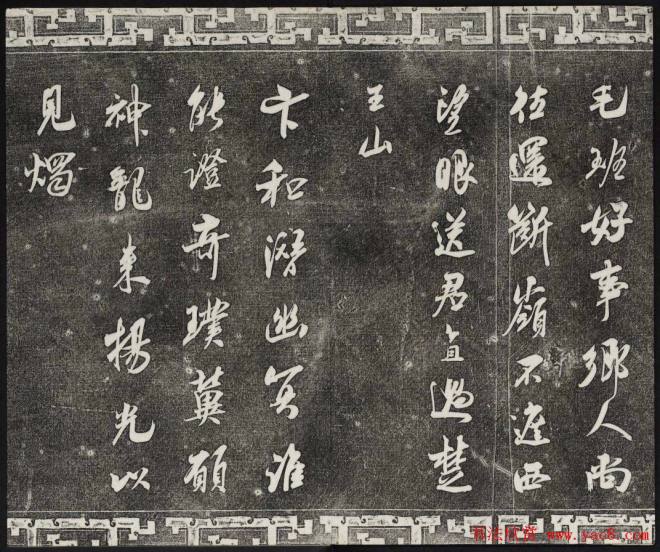 毛班好事鄉人尚
往還斷嶺不遮西
望眼送君直過楚
王山
卞和潛幽冥誰
能證奇璞冀願
神龍來揚光以
見燭
书法欣赏 www.yac8.com